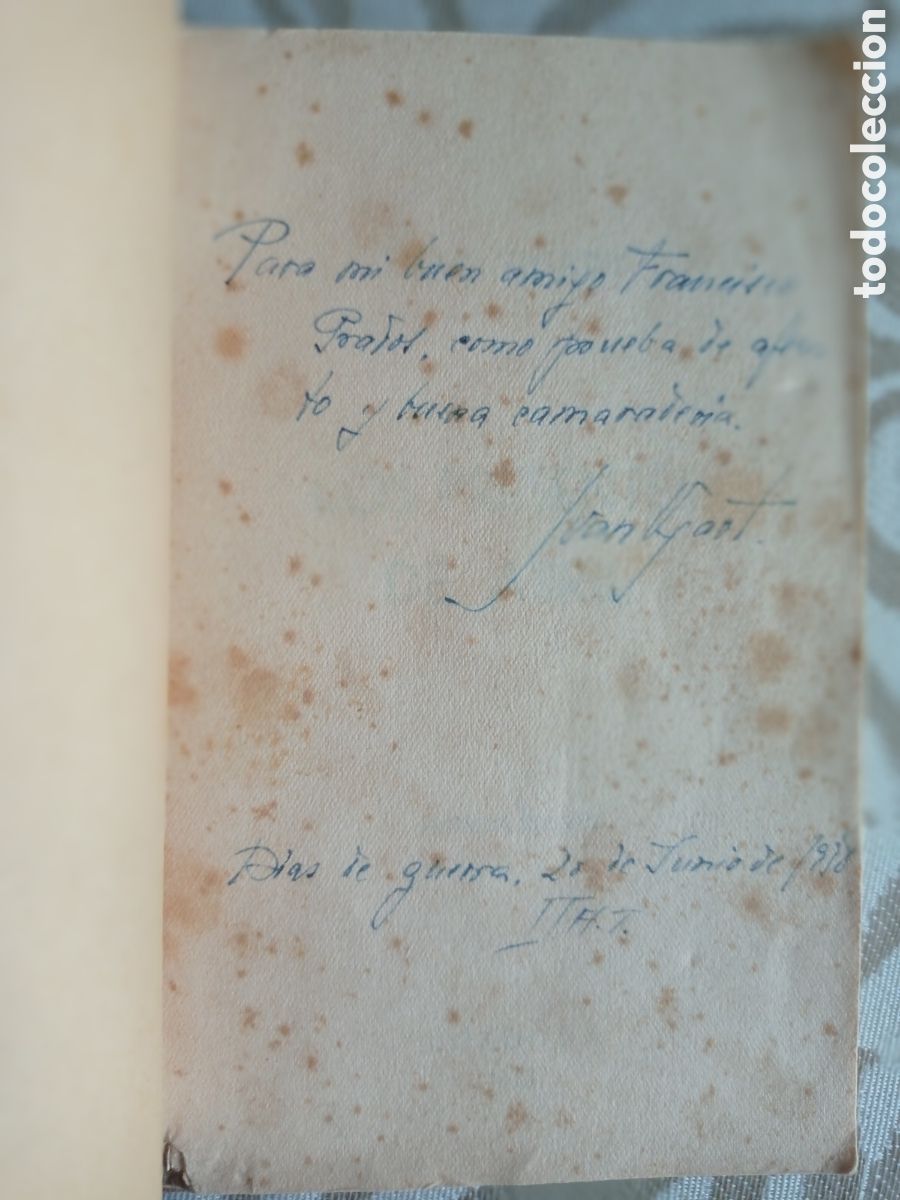 Para mi buen amigo Francisco
Prados, como prueba de afec
to y buena camaradería.
Días de guerra, 20 de Junio de 1938
II A.T.
todocoleccion